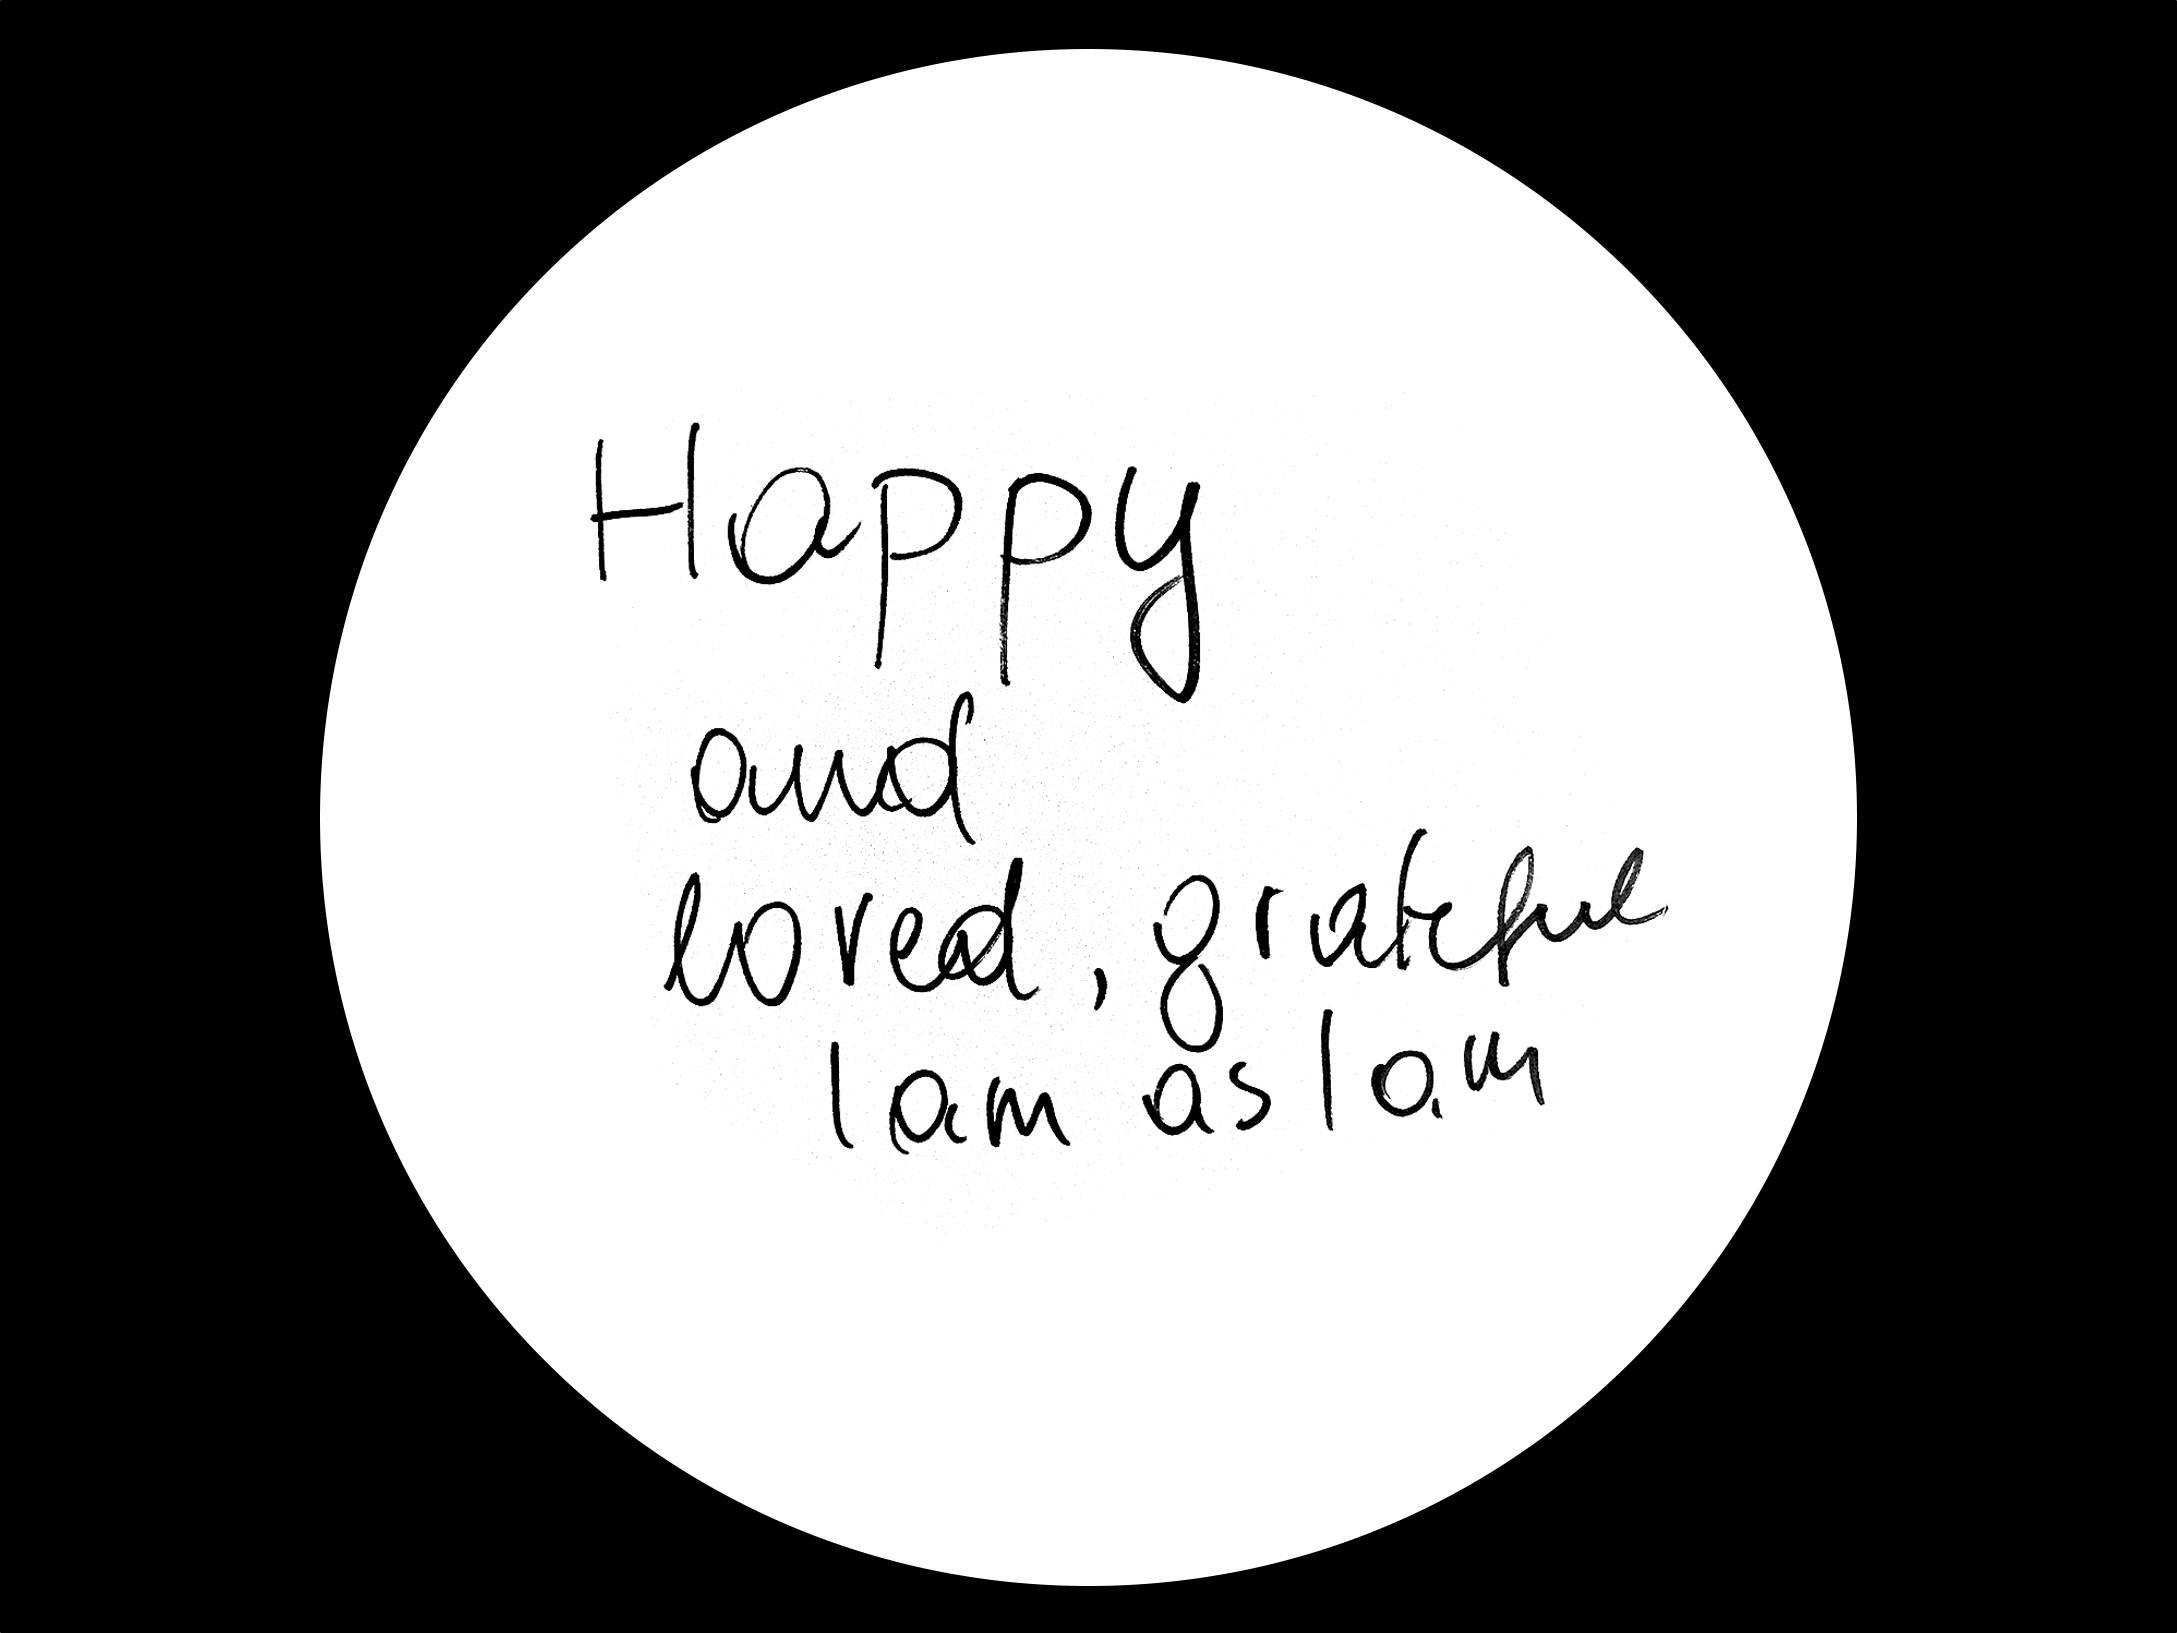 Happy
and
loved, grateful
I am as I am